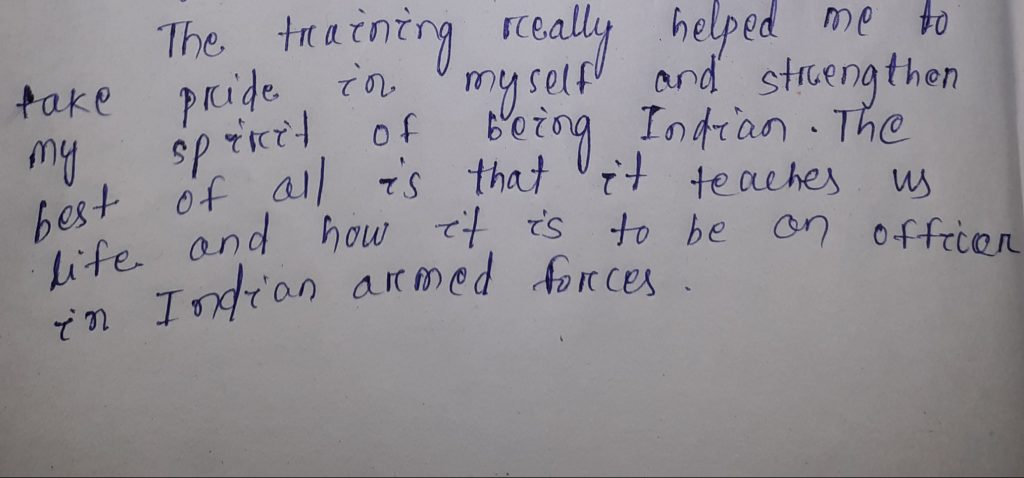 The training really helped me to
take pride in myself and strengthen
my spirit of being Indian. The
best of all is that it teaches us
life and how it is to be an officer
in Indian armed forces.